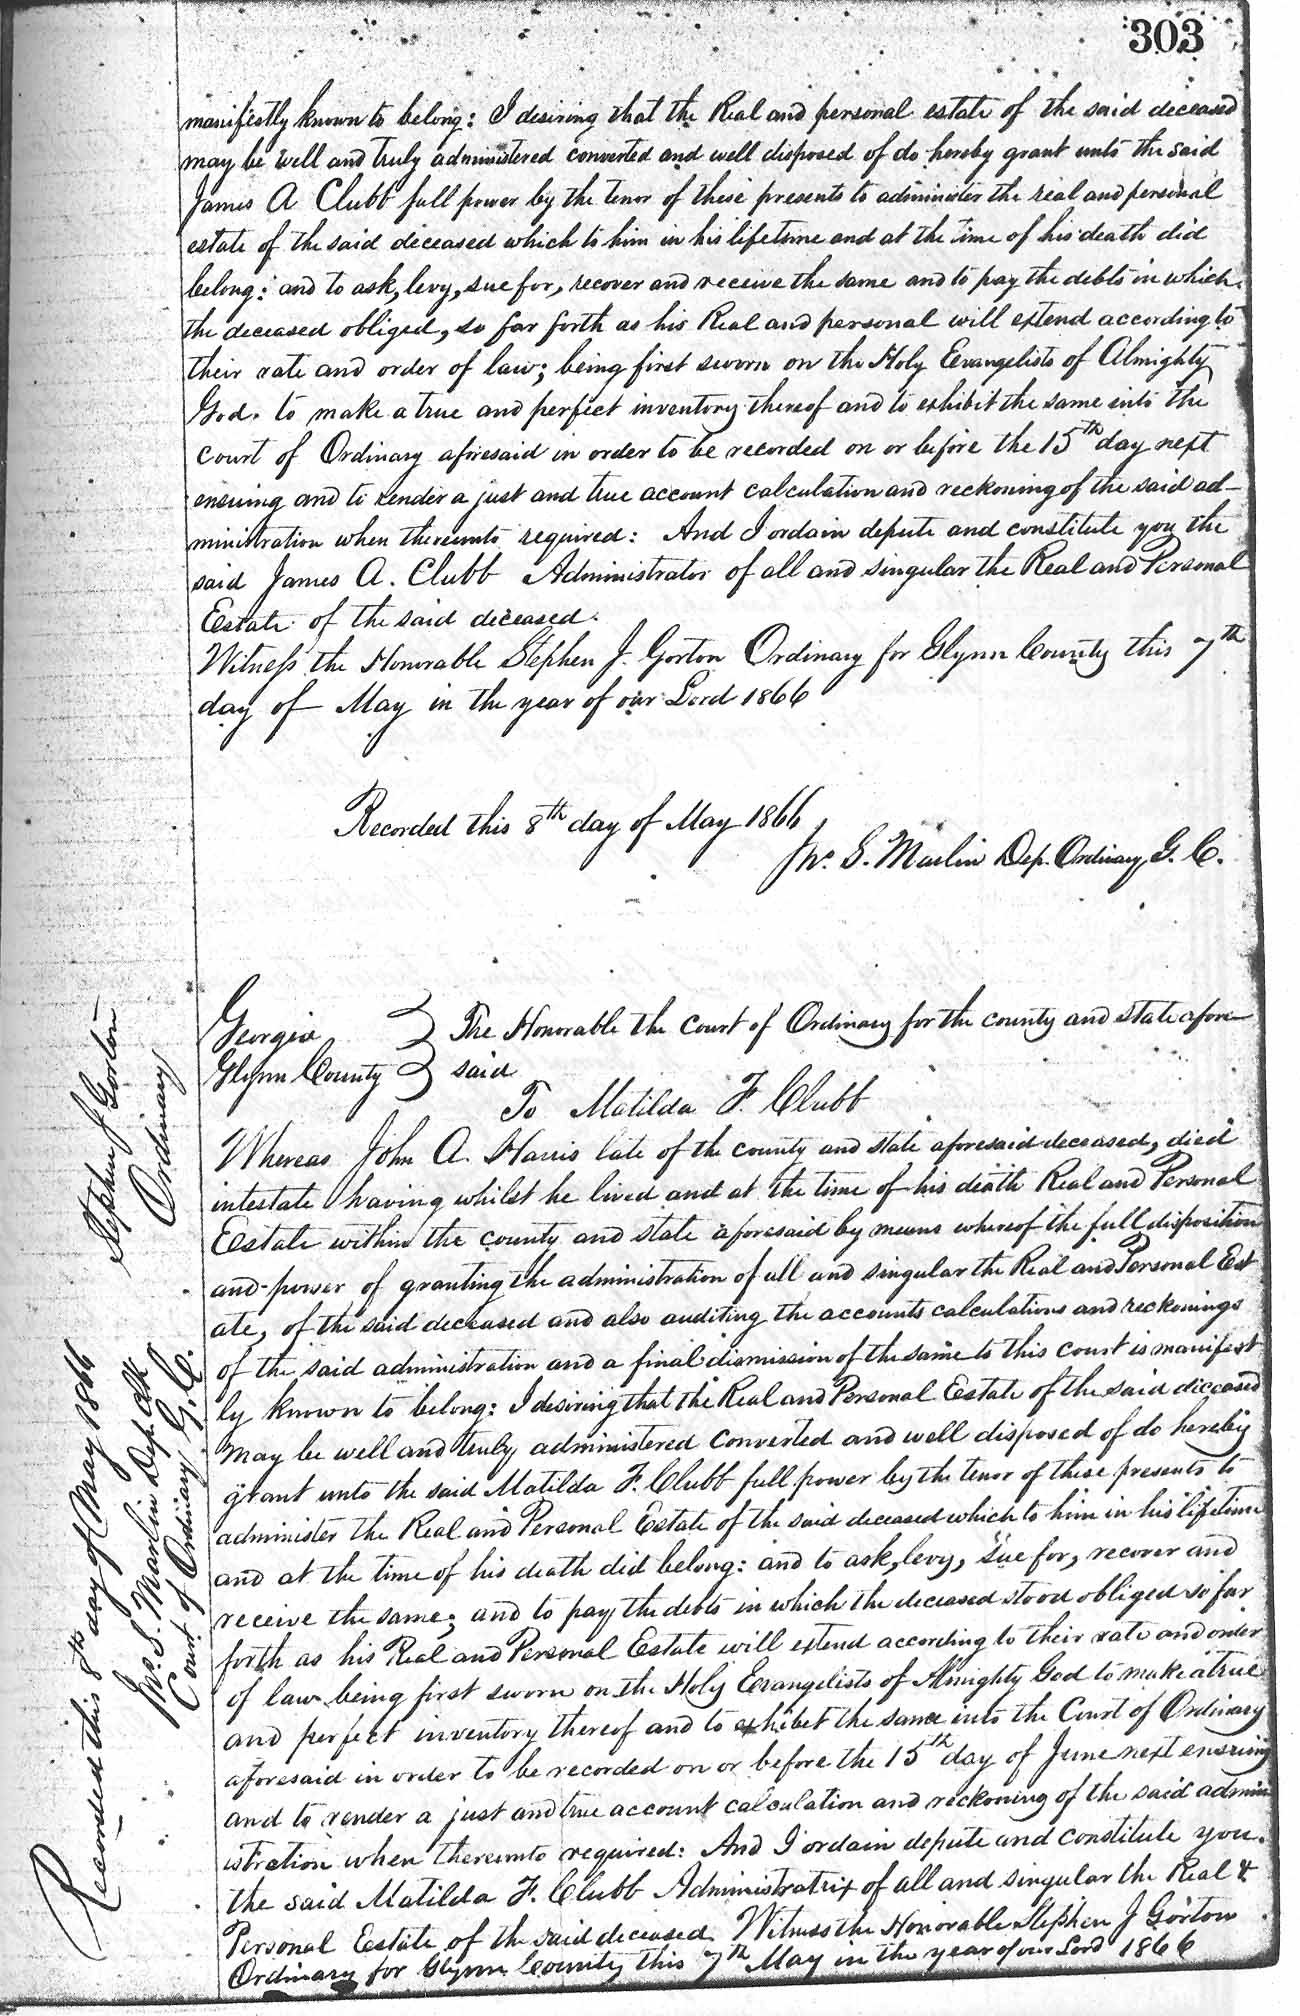 303
manifestly known to belong: I desiring that the Real and personal estate of the said deceased
may be well and truly administered converted and well disposed of do hereby grant unto the said
James A Clubb full power by the tenor of these presents to administer the real and personal
estate of the said deceased which to him in his lifetime and at the time of his death did
belong: and to ask, levy, sue for, recover and receive the same and to pay the debts in which
the deceased obliged, so far forth as his Real and personal will extend according to
their rate and order of law; being first sworn on the Holy Evangelists of Almighty
God. to make a true and perfect inventory thereof and to exhibit the same into the
court of Ordinary aforesaid in order to be recorded on or before the 15th day next
ensuing and to render a just and true account calculation and reckoning of the said ad-
ministration when thereunto required: And I ordain depute and constitute you the
said James A. Clubb Administrator of all and singular the Real and Personal
Estate of the said deceased.
Witness the Honorable Stephen J. Gorton Ordinary for Glynn County this 7th
day of May in the year of our Lord 1866
Recorded this 8th day of May 1866
Jno. S. Marlin Dep. Ordinary G. C.
Georgia } The Honorable the Court of Ordinary for the county and state afore-
Glynn County } said
To Matilda F. Clubb
Whereas John A. Harris late of the county and state aforesaid deceased, died
intestate having whilst he lived and at the time of his death Real and Personal
Estate within the county and state aforesaid by means whereof the full disposition
and power of granting the administration of all and singular the Real and Personal Est
ate, of the said deceased and also auditing the accounts calculations and reckonings
of the said administration and a final dismission of the same to this court is manifest
ly known to belong: I desiring that the Real and Personal Estate of the said deceased
may be well and truly administered converted and well disposed of do hereby
grant unto the said Matilda F. Clubb full power by the tenor of these presents to
administer the Real and Personal Estate of the said deceased which to him in his lifetime
and at the time of his death did belong: and to ask, levy, sue for, recover and
receive the same; and to pay the debts in which the deceased stood obliged so far
forth as his Real and Personal Estate will extend according to their rate and order
of law being first sworn on the Holy Evangelists of Almighty God to make a true
and perfect inventory thereof and to exhibet the same into the Court of Ordinary
aforesaid in order to be recorded on or before the 15th day of June next ensuing
and to render a just and true account calculation and reckoning of the said admin
istration when thereunto required: And I ordain depute and constitute you
the said Matilda F. Clubb Administratrix of all and singular the Real &
Personal Estate of the said deceased. Witness the Honorable Stephen J Gorton
Ordinary for Glynn County this 7th May in the year of our Lord 1866
Stephen J Gorton
Ordinary
Recorded this 8th day of May 1866
Jno. S. Marlin Dep. Clk
Court of Ordinary G. C.